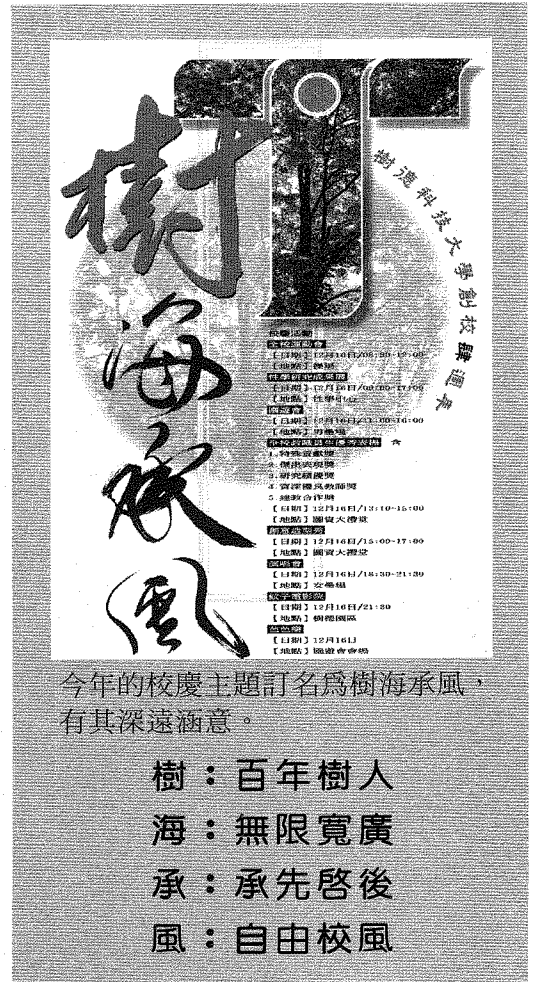 樹海承風
樹德科技大學創校 週年
校慶活動
全校運動會
【日期】12月16日/08:30-12:00
【地點】操場
性學研究成果展
【日期】12月16日/09:00-17:00
【地點】性學中心
園遊會
【地點】男壘場
全校教職員生優秀表揚
1.特殊貢獻獎
2.傑出表現獎
3.研究績優獎
4.資深優良教師獎
5.建教合作獎
【日期】12月16日/13:10-15:00
【地點】圖資大禮堂
【日期】12月16日/15:00-17:00
【地點】圖資大禮堂
演唱會
【日期】12月16日/18:30-21:30
【地點】女壘場
蚊子電影院
【日期】12月16日/21:30
【地點】樹德園區
【日期】12月16日
【地點】園遊會會場
今年的校慶主題訂名為樹海承風，
有其深遠涵意。
樹：百年樹人
海：無限寬廣
承：承先啓後
風：自由校風